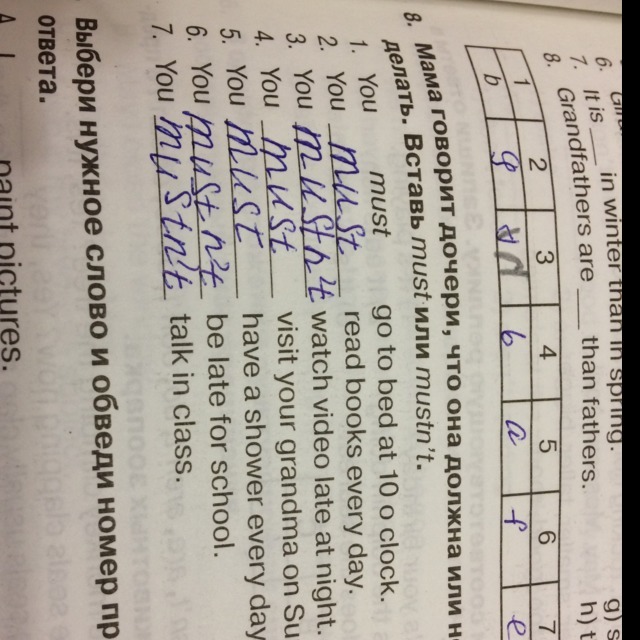 6.
in winter than in spring.
7. It is ___ than fathers.
8. Grandfathers are ___
g) s
h) t
1 2 3 4 5 6 7
b g d b a f e
8. Мама говорит дочери, что она должна или н
делать. Вставь must или mustn't.
1. You must go to bed at 10 o clock.
2. You must read books every day.
3. You mustn't watch video late at night.
4. You must visit your grandma on Su
5. You must have a shower every day
6. You mustn't be late for school.
7. You mustn't talk in class.
Выбери нужное слово и обведи номер пр
ответа.
paint pictures.